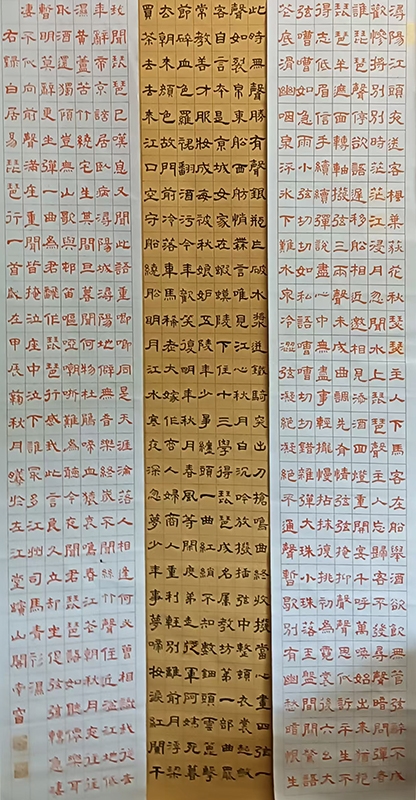 潯陽江頭夜送客楓葉荻花秋瑟瑟主人下馬客在船舉酒欲飲無管弦醉不成
歡慘將別別時茫茫江浸月忽聞水上琵琶聲主人忘歸客不發尋聲暗問彈者
誰琵琶聲停欲語遲移船相近邀相見添酒回燈重開宴千呼萬喚始出來猶抱
琵琶半遮面轉軸撥弦三兩聲未成曲調先有情弦弦掩抑聲聲思似訴平生不
得志低眉信手續續彈說盡心中無限事輕攏慢撚抹復挑初為霓裳後六幺大
弦嘈嘈如急雨小弦切切如私語嘈嘈切切錯雜彈大珠小珠落玉盤間關鶯語
花底滑幽咽泉流冰下難冰泉冷澀弦凝絕凝絕不通聲暫歇別有幽愁暗恨生
此時無聲勝有聲銀瓶乍破水漿迸鐵騎突出刀槍鳴曲終收撥當心畫四弦一
聲如裂帛東船西舫悄無言唯見江心秋月白沉吟放撥插弦中整頓衣裳起斂
容自言本是京城女家在蝦蟆陵下住十三學得琵琶成名屬教坊第一部曲罷
常教善才服妝成每被秋娘妒五陵年少爭纏頭一曲紅綃不知數鈿頭雲篦擊
節碎血色羅裙翻酒污今年歡笑復明年秋月春風等閒度弟走從軍阿姨死暮
去朝來顏色故門前冷落車馬稀老大嫁作商人婦商人重利輕別離前月浮梁
買茶去去來江口空守船繞船明月江水寒夜深忽夢少年事夢啼妝淚紅闌干
我聞琵琶已嘆息又聞此語重唧唧同是天涯淪落人相逢何必曾相識我從去
年辭帝京謫居臥病潯陽城潯陽地僻無音樂終歲不聞絲竹聲住近湓江地低
濕黃蘆苦竹繞宅生其間旦暮聞何物杜鵑啼血猿哀鳴春江花朝秋月夜往往
取酒還獨傾豈無山歌與村笛嘔啞嘲哳難為聽今夜聞君琵琶語如聽仙樂耳
暫明莫辭更坐彈一曲為君翻作琵琶行感我此言良久立卻坐促弦弦轉急淒
淒不似向前聲滿座重聞皆掩泣座中泣下誰最多江州司馬青衫濕
右白居易琵琶行一首歲甲辰秋月於江堂山